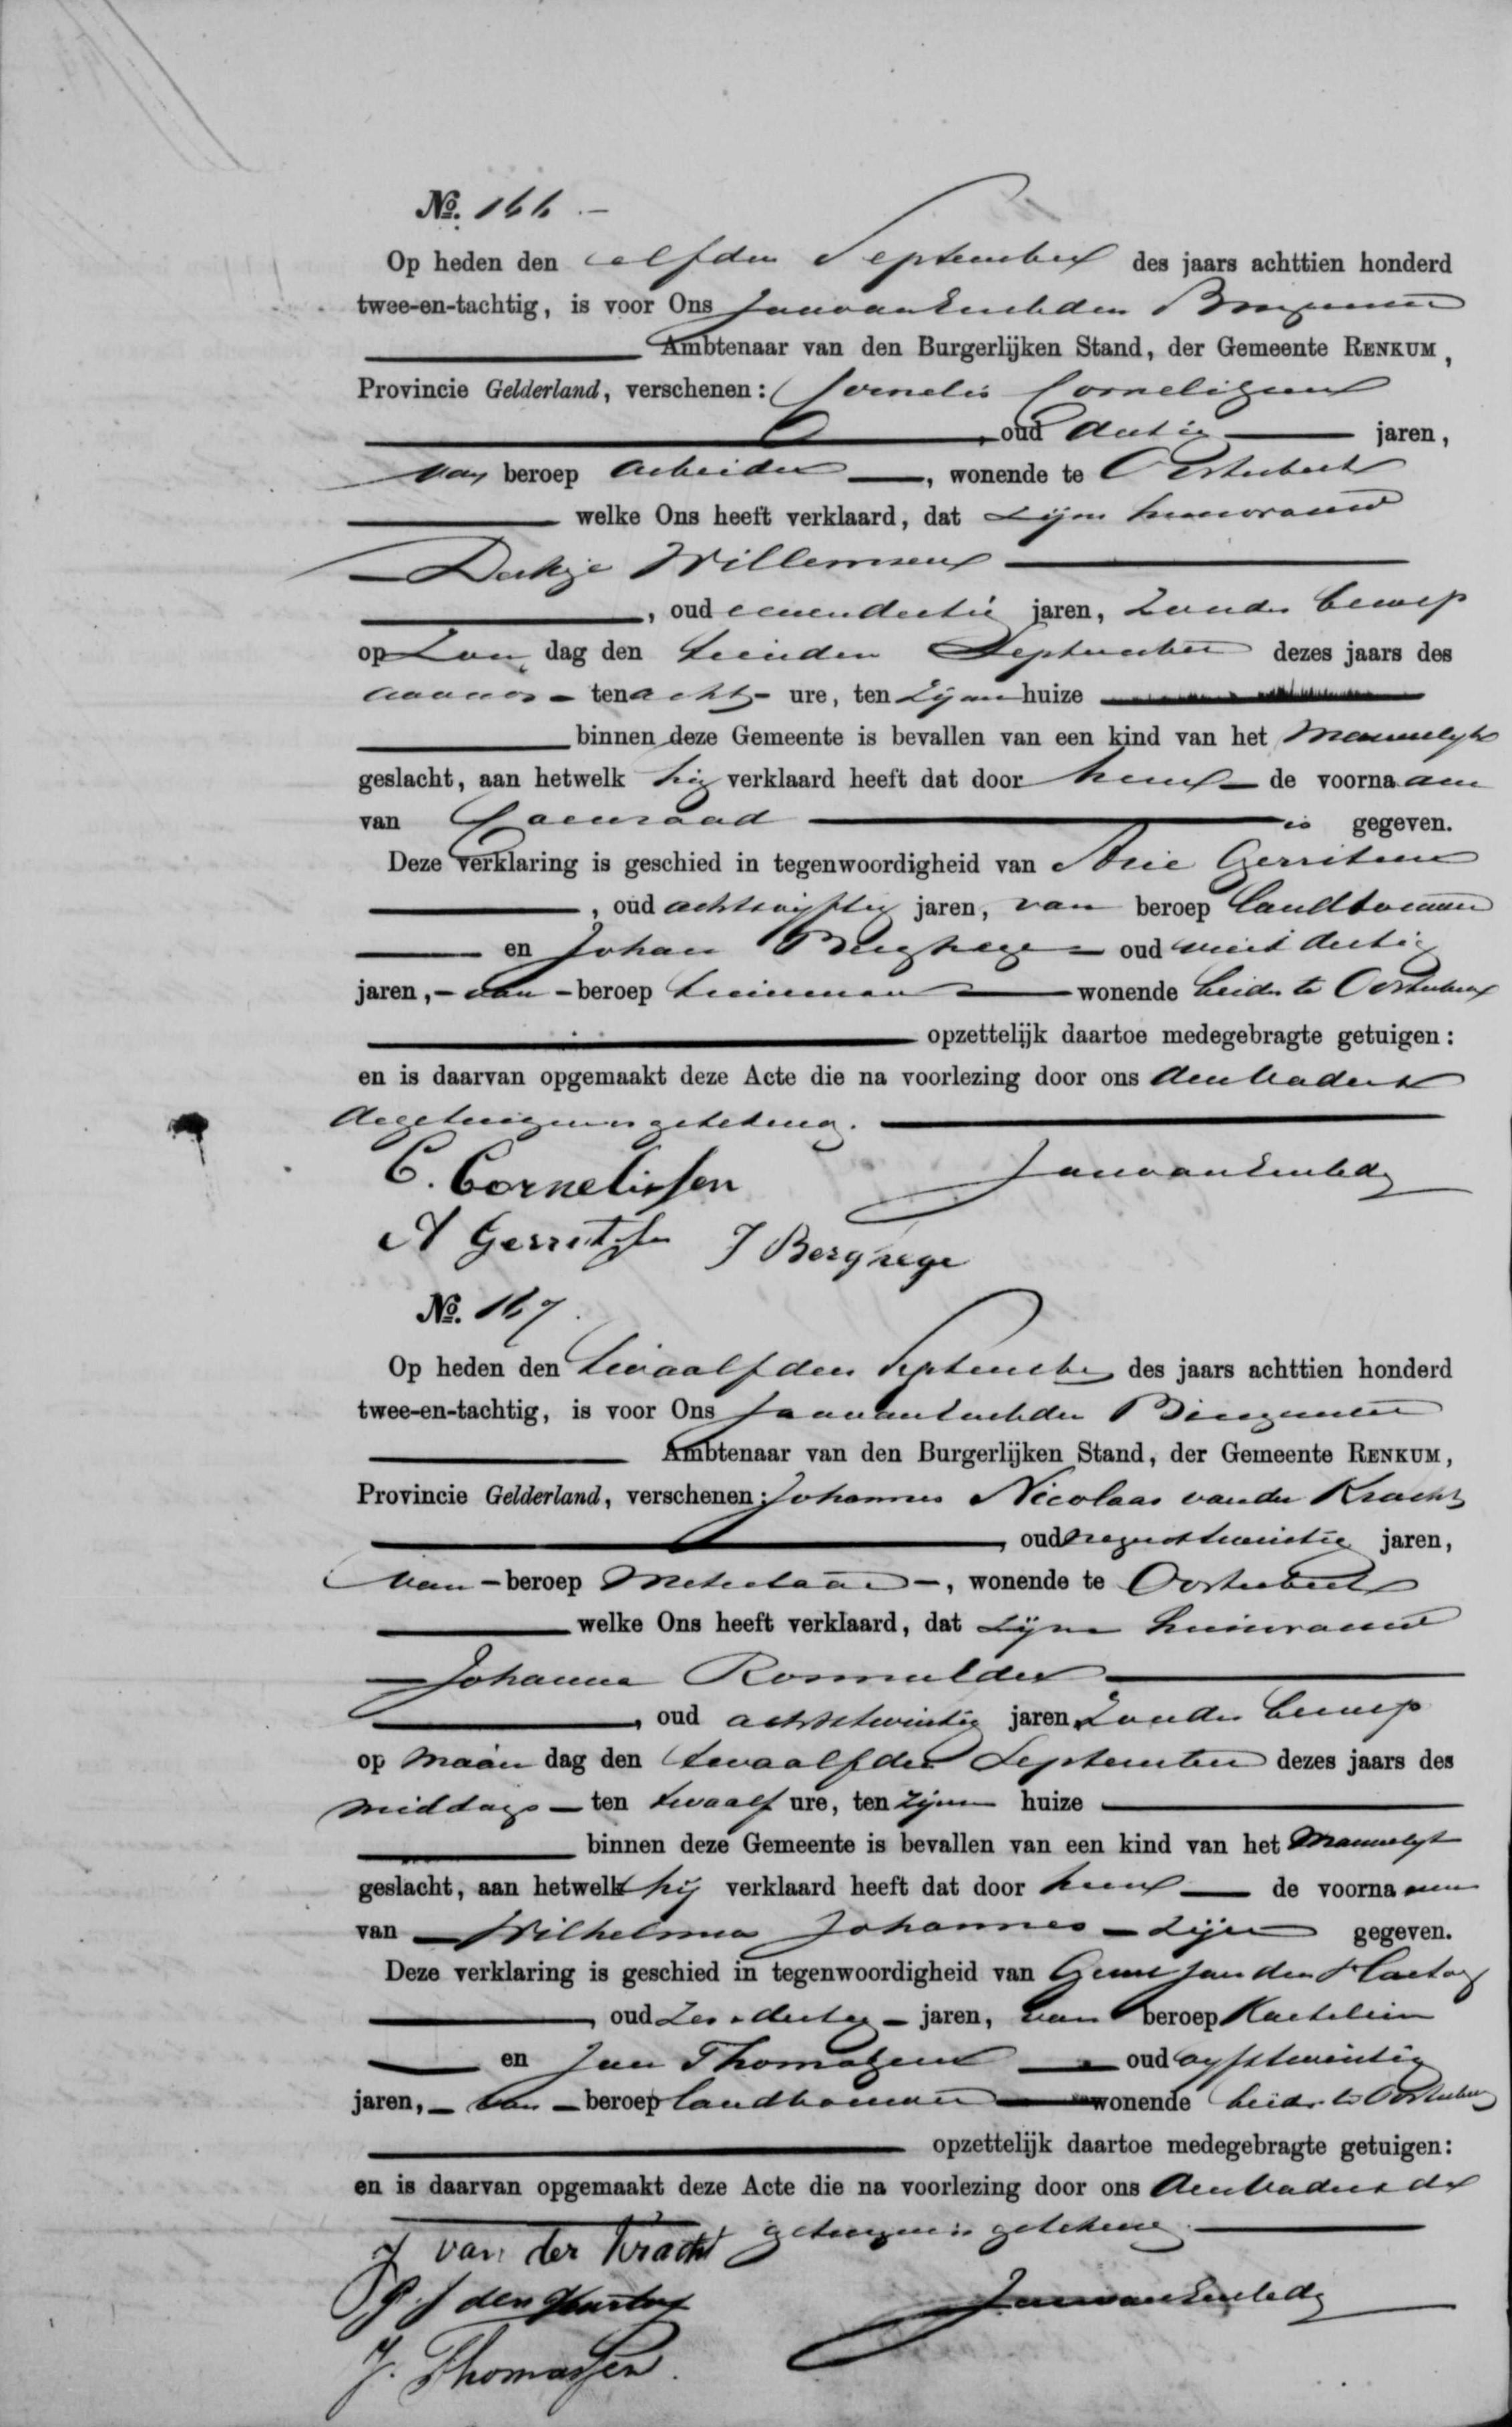 No. 166.-
Op heden den elfden September des jaars achttien honderd
twee-en-tachtig, is voor Ons Jan van Embden Burgemeester
Ambtenaar van den Burgerlijken Stand, der Gemeente RENKUM,
Provincie Gelderland, verschenen: Cornelis Cornelissen
, oud dertig jaren,
van beroep arbeider, wonende te Oosterbeek
welke Ons heeft verklaard, dat zijne huisvrouw
Derkje Willemsen
, oud eenendertig jaren, zonder beroep
op Zondag den tienden September dezes jaars des
avonds ten acht ure, ten zijnen huize
binnen deze Gemeente is bevallen van een kind van het mannelijk
geslacht, aan hetwelk hij verklaard heeft dat door hem de voornaam
van Coenraad is gegeven.
Deze verklaring is geschied in tegenwoordigheid van Arie Gerritsen
, oud achtenvijftig jaren, van beroep landbouwer
en Johan Berghege oud dertig
jaren, van beroep tuinman wonende beiden te Oosterbeek
opzettelijk daartoe medegebragte getuigen:
en is daarvan opgemaakt deze Acte die na voorlezing door ons den vader en
de getuigen is getekend.
C. Cornelissen Jan van Embden
A Gerritzen J Berghege
No. 167.
Op heden den twaalfden September des jaars achttien honderd
twee-en-tachtig, is voor Ons Jan van Embden Burgemeester
Ambtenaar van den Burgerlijken Stand, der Gemeente RENKUM,
Provincie Gelderland, verschenen: Johannes Nicolaas van der Kracht
, oud negentwintig jaren,
van beroep Metselaar, wonende te Oosterbeek
welke Ons heeft verklaard, dat zijne huisvrouw
Johanna Rosmulder
, oud achttwintig jaren, zonder beroep
op Maandag den twaalfden September dezes jaars des
middags ten twaalf ure, ten zijnen huize
binnen deze Gemeente is bevallen van een kind van het Mannelijk
geslacht, aan hetwelk hij verklaard heeft dat door hem de voornamen
van Wilhelmus Johannes zijn gegeven.
Deze verklaring is geschied in tegenwoordigheid van Gerrit Jan den Hartog
, oud zesendertig jaren, van beroep Kastelein
en Jan Thomassen oud vijftwintig
jaren, van beroep landbouwer wonende beiden te Oosterbeek
opzettelijk daartoe medegebragte getuigen:
en is daarvan opgemaakt deze Acte die na voorlezing door ons den vader en de
getuigen is getekend.
J van der Kracht
G J den Hartog Jan van Embden
J. Thomassen.